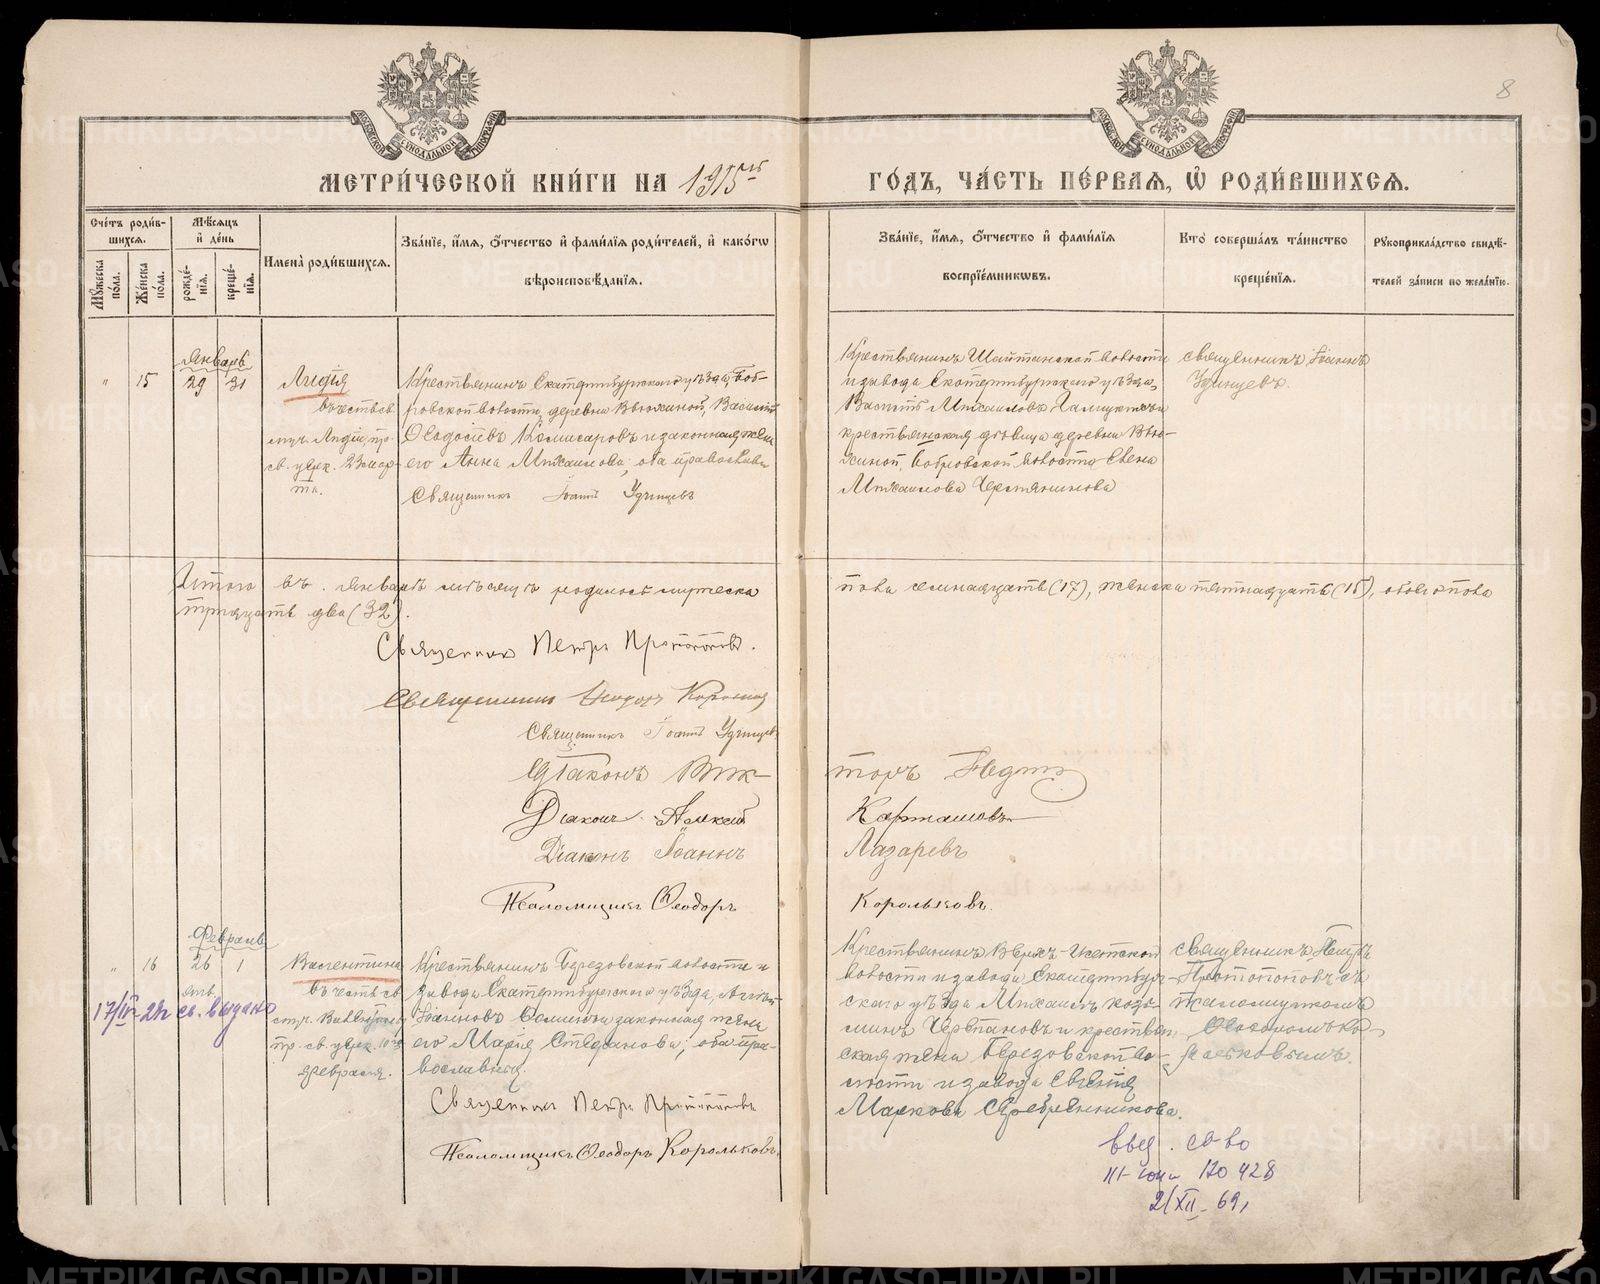 8
МОСКОВСКОЙ СѴНОДАЛЬНОЙ ТИПОГРАФІИ
МОСКОВСКОЙ СѴНОДАЛЬНОЙ ТИПОГРАФІИ
МЕТРИ́ЧЕСКОЙ КНИ́ГИ НА 1915 ГО́ДЪ, ЧА́СТЬ ПЕ́РВАѦ, Ѽ РОДИ́ВШИХСѦ.
Сче́тъ роди́в-
шихсѧ.
Мꙋ́жеска по́ла.
Же́нска по́ла.
Мѣ́сѧцъ
и҆ де́нь
рожде́-
нїѧ.
креще́-
нїѧ.
И҆мена̀ роди́вшихсѧ.
Зва́нїе, и҆́мѧ, ѻ҆́тчество и҆ фами́лїѧ роди́телей, и҆ како́гѡ
вѣроисповѣ́данїѧ.
Зва́нїе, и҆́мѧ, ѻ҆́тчество и҆ фами́лїѧ
воспрїе́мникѡвъ.
Кто̀ соверша́лъ та́инство
креще́нїѧ.
Рꙋкоприкла́дство свидѣ́-
телей за́писи по жела́нїю.
Январь
" 15 29 31 Лидія
въ честь св.
муч. Лидіи, пр.
св. церк. 23 мар-
та.
Крестьянинъ Екатеринбургскаго уѣзда, Боб-
ровской волости, деревни Вьюхиной, Василій
Ѳеодосіевъ Комисаровъ и законная жена
его Анна Михаилова, оба православн.
Священникъ Іоаннъ Удинцевъ
Крестьянинъ Шайтанской волости
и завода Екатеринбургскаго уѣзда,
Василій Михаиловъ
крестьянская дѣвица деревни Вью-
хиной, Бобровской волости
Михаилова
Священникъ Іоаннъ
Удинцевъ.
Итого въ Январѣ мѣсяцѣ родилось мужеска пола семнадцать (17), женска пятнадцать (15), обоего пола
тридцать два (32).
Священникъ Петръ Протопоповъ.
Священникъ
Священникъ Іоаннъ Удинцевъ
Діаконъ Вик торъ
Діаконъ Алексій Карташовъ
Діаконъ Іоаннъ Лазаревъ
Псаломщикъ Ѳеодоръ Корольковъ.
Февраль
" 16 26 1 Валентина
въ честь св.
муч. Валентины
пр. св. церк. 10го
февраля.
17/IV-22 св. выдано
Крестьянинъ Березовской волости и
завода Екатеринбургскаго уѣзда,
и законная жена
его Марія Стефанова; оба пра-
вославные.
Священникъ Петръ Протопоповъ
Псаломщикъ Ѳеодоръ Корольковъ.
Крестьянинъ Верхъ-Исетской
волости и завода Екатеринбург-
скаго уѣзда Михаилъ Козь-
минъ и крестьян-
ская жена Березовской во-
лости и завода
Маркова
Священникъ Петръ
Протопоповъ съ
псаломщикомъ
Ѳеодоромъ Ко-
рольковымъ.
св-во
420428
2/XII-69,
METRIKI.GASO-URAL.RU